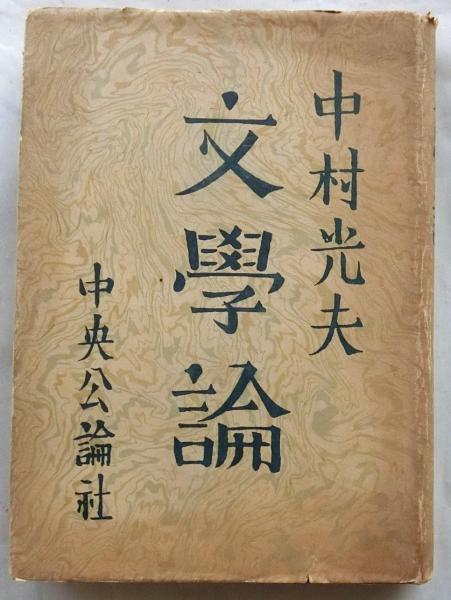 中村光夫
文學論
中央公論社